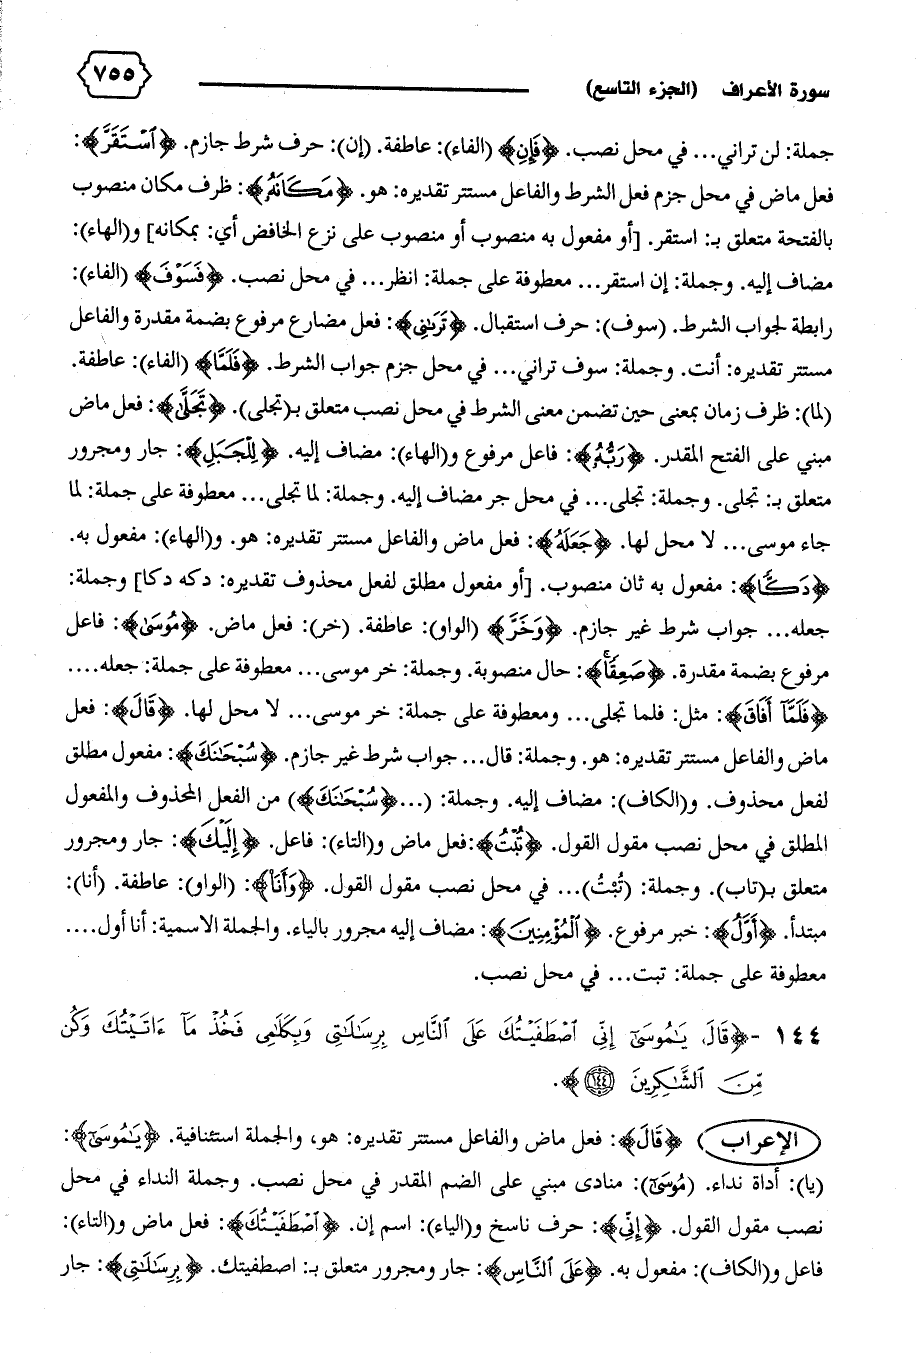 سورة الأعراف (الجزء التاسع) ٧٥٥
جملة: لن تراني... في محل نصب. ﴿فَإِنِ﴾ (الفاء): عاطفة. (إن): حرف شرط جازم. ﴿ٱسْتَقَرَّ﴾:
فعل ماض في محل جزم فعل الشرط والفاعل مستتر تقديره: هو. ﴿مَكَانَهُۥ﴾: ظرف مكان منصوب
بالفتحة متعلق بـ: استقر. [أو مفعول به منصوب أو منصوب على نزع الخافض أي: بمكانه] و(الهاء):
مضاف إليه. وجملة: إن استقر... معطوفة على جملة: انظر... في محل نصب. ﴿فَسَوْفَ﴾ (الفاء):
رابطة لجواب الشرط. (سوف): حرف استقبال. ﴿تَرَىٰنِي﴾: فعل مضارع مرفوع بضمة مقدرة والفاعل
مستتر تقديره: أنت. وجملة: سوف تراني... في محل جزم جواب الشرط. ﴿فَلَمَّا﴾ (الفاء): عاطفة.
(لما): ظرف زمان بمعنى حين تضمن معنى الشرط في محل نصب متعلق بـ(تجلى). ﴿تَجَلَّىٰ﴾: فعل ماض
مبني على الفتح المقدر. ﴿رَبُّهُۥ﴾: فاعل مرفوع و(الهاء): مضاف إليه. ﴿لِلْجَبَلِ﴾: جار ومجرور
متعلق بـ: تجلى. وجملة: تجلى... في محل جر مضاف إليه. وجملة: لما تجلى... معطوفة على جملة: لما
جاء موسى... لا محل لها. ﴿جَعَلَهُۥ﴾: فعل ماض والفاعل مستتر تقديره: هو. و(الهاء): مفعول به.
﴿دَكًّا﴾: مفعول به ثان منصوب. [أو مفعول مطلق لفعل محذوف تقديره: دكه دكا] وجملة:
جعله... جواب شرط غير جازم. ﴿وَخَرَّ﴾ (الواو): عاطفة. (خر): فعل ماض. ﴿مُوسَىٰ﴾: فاعل
مرفوع بضمة مقدرة. ﴿صَعِقًا﴾: حال منصوبة. وجملة: خر موسى... معطوفة على جملة: جعله....
﴿فَلَمَّآ أَفَاقَ﴾: مثل: فلما تجلى... ومعطوفة على جملة: خر موسى... لا محل لها. ﴿قَالَ﴾: فعل
ماض والفاعل مستتر تقديره: هو. وجملة: قال... جواب شرط غير جازم. ﴿سُبْحَٰنَكَ﴾: مفعول مطلق
لفعل محذوف. و(الكاف): مضاف إليه. وجملة: (...﴿سُبْحَٰنَكَ﴾) من الفعل المحذوف والمفعول
المطلق في محل نصب مقول القول. ﴿تُبْتُ﴾:فعل ماض و(التاء): فاعل. ﴿إِلَيْكَ﴾: جار ومجرور
متعلق بـ(تاب). وجملة: (تُبْتُ)... في محل نصب مقول القول. ﴿وَأَنَا۠﴾: (الواو): عاطفة. (أنا):
مبتدأ. ﴿أَوَّلُ﴾: خبر مرفوع. ﴿ٱلْمُؤْمِنِينَ﴾: مضاف إليه مجرور بالياء. والجملة الاسمية: أنا أول....
معطوفة على جملة: تبت... في محل نصب.
١٤٤ -﴿قَالَ يَٰمُوسَىٰٓ إِنِّى ٱصْطَفَيْتُكَ عَلَى ٱلنَّاسِ بِرِسَٰلَٰتِى وَبِكَلَٰمِى فَخُذْ مَآ ءَاتَيْتُكَ وَكُن
مِّنَ ٱلشَّٰكِرِينَ ١٤٤﴾.
الإعراب ﴿قَالَ﴾: فعل ماض والفاعل مستتر تقديره: هو، والجملة استئنافية. ﴿يَٰمُوسَىٰٓ﴾:
(يا): أداة نداء. (مُوسَىٰٓ): منادى مبني على الضم المقدر في محل نصب. وجملة النداء في محل
نصب مقول القول. ﴿إِنِّي﴾: حرف ناسخ و(الياء): اسم إن. ﴿ٱصْطَفَيْتُكَ﴾: فعل ماض و(التاء):
فاعل و(الكاف): مفعول به. ﴿عَلَى ٱلنَّاسِ﴾: جار ومجرور متعلق بـ: اصطفيتك. ﴿بِرِسَٰلَٰتِى﴾: جار